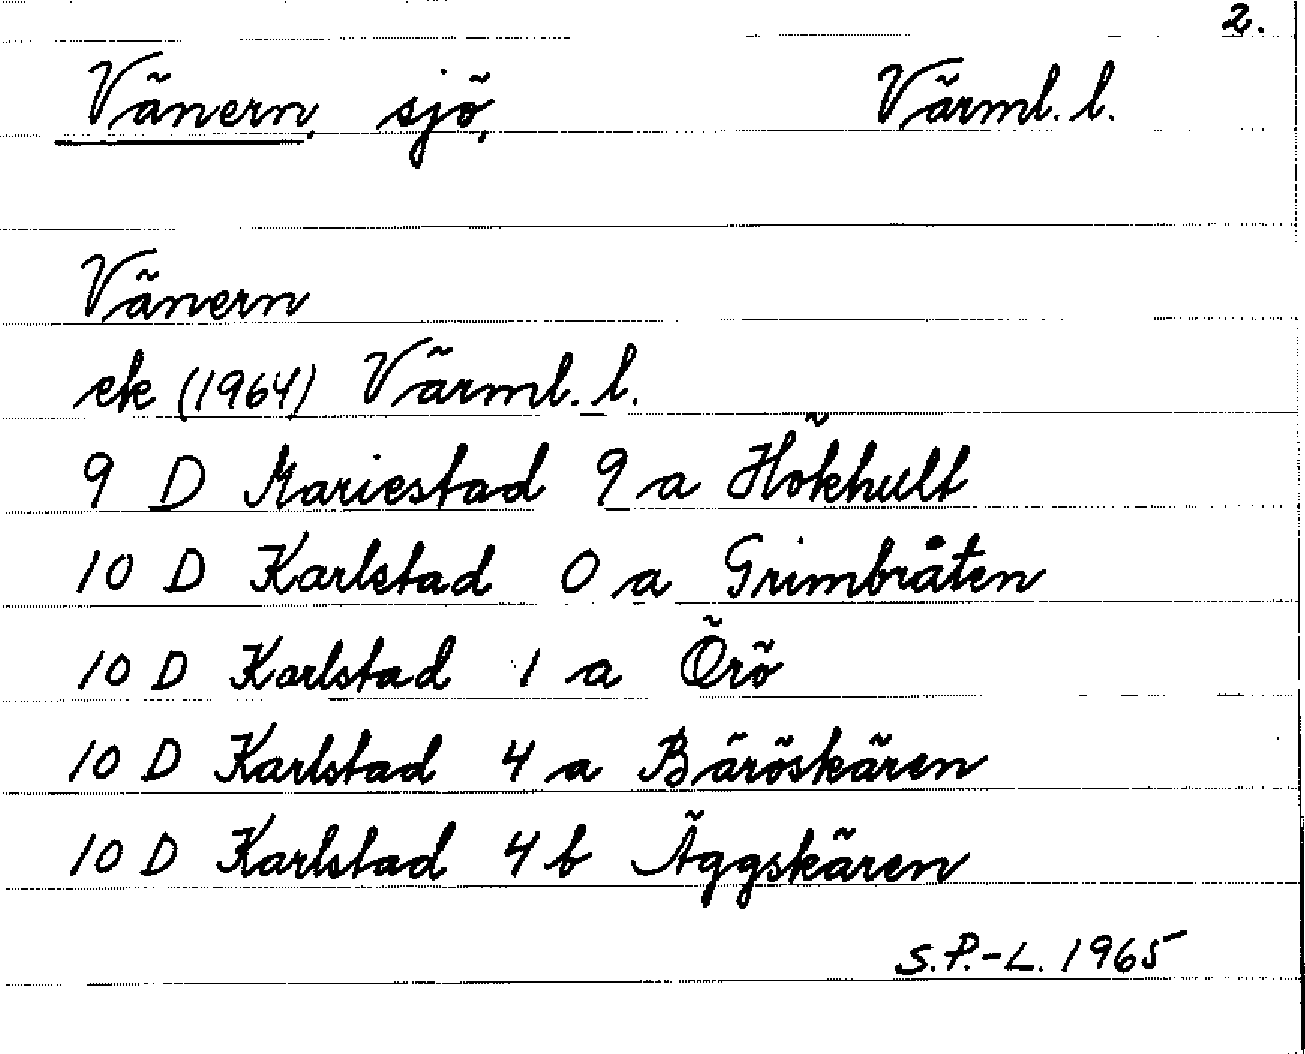 2.
Vänern, sjö, Värml. l.
Vänern
ek (1964) Värml. l.
9 D Mariestad 9 a Hökhult
10 D Karlstad 0 a Grimbråten
10 D Karlstad 1 a Örö
10 D Karlstad 4 a Bäröskären
10 D Karlstad 4 b Äggskären
S.P.-L. 1965